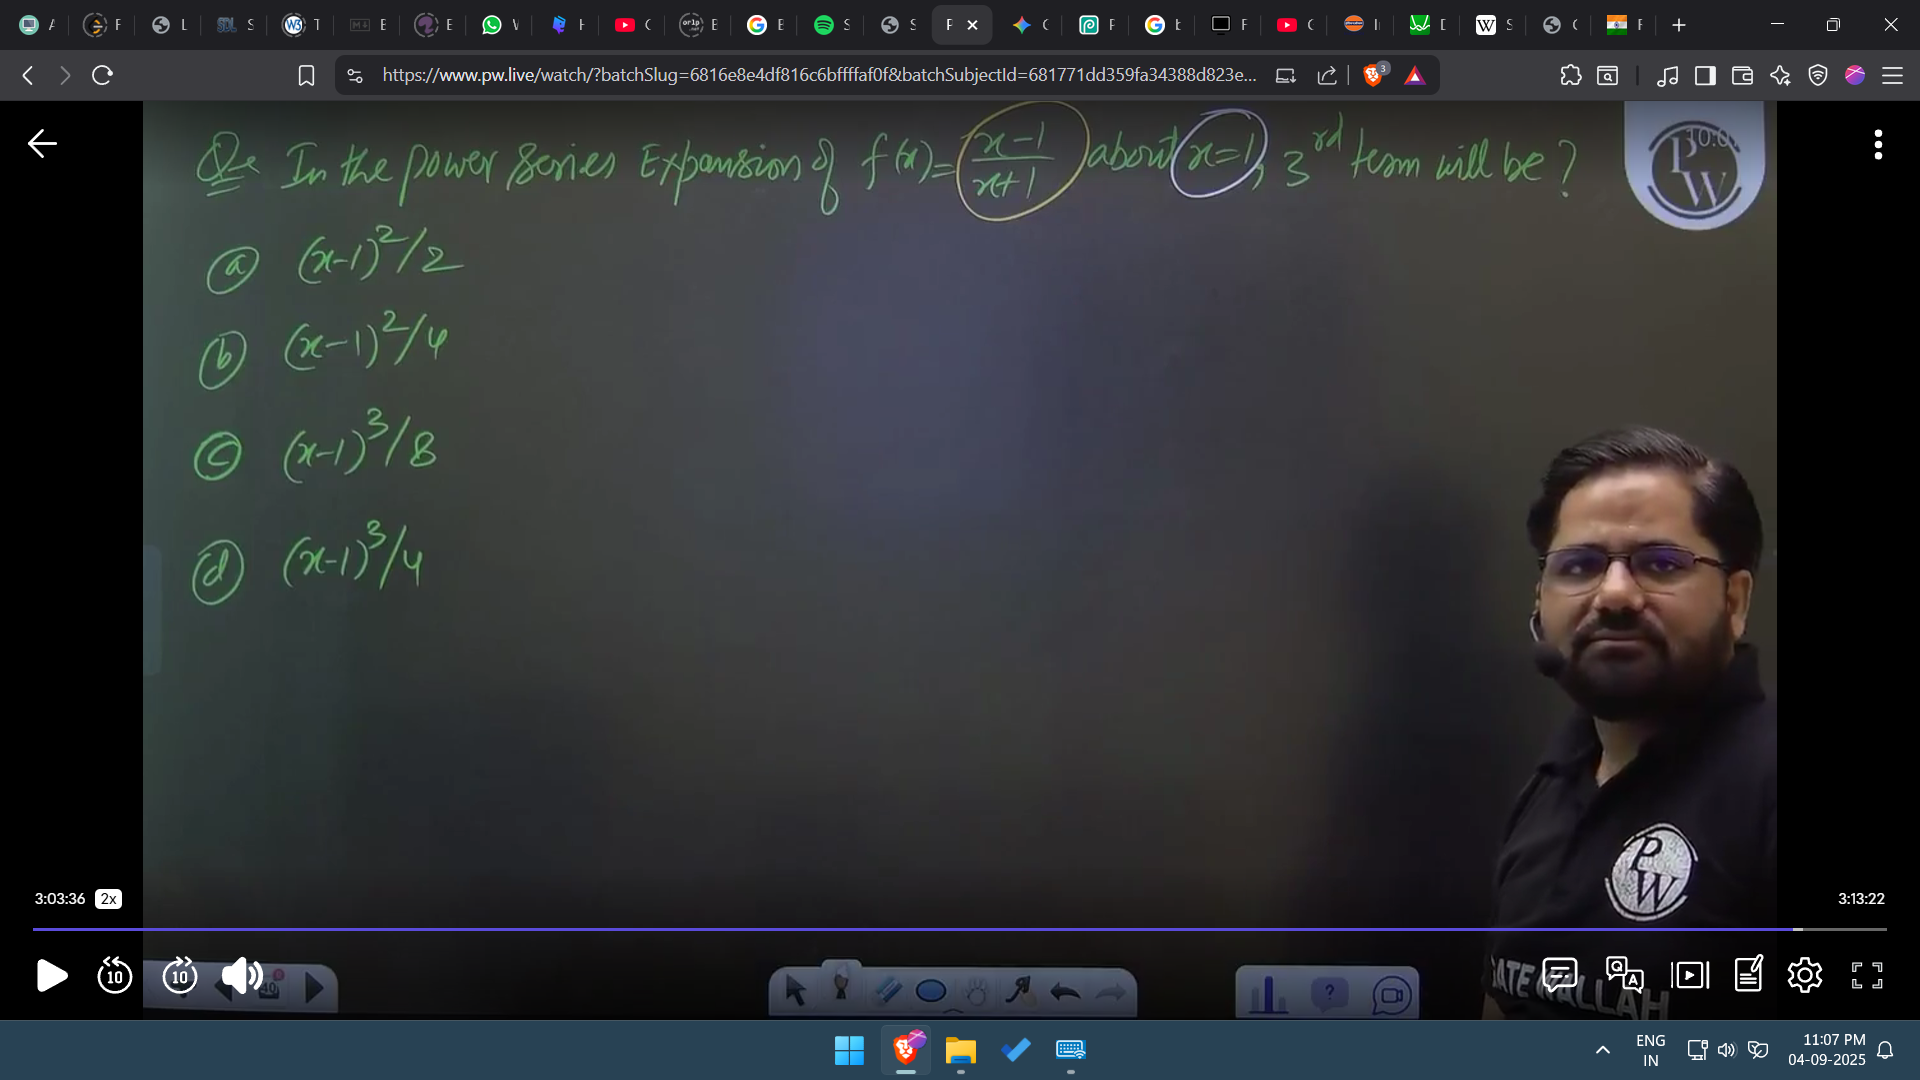 A F L S T E E W H C E E S S P C P G b F C I D S C F
https://www.pw.live/watch/?batchSlug=6816e8e4df816c6bffffaf0f&batchSubjectId=681771dd359fa34388d823e...
3
Q:- In the power series Expansion of f(x)= x-1/x+1 about x=1, 3rd term will be ?
PW
(a) (x-1)²/2
(b) (x-1)²/4
(c) (x-1)³/8
(d) (x-1)³/4
PW
3:03:36 2x
3:13:22
10 10
GATE WALLAH
ENG
IN
11:07 PM
04-09-2025